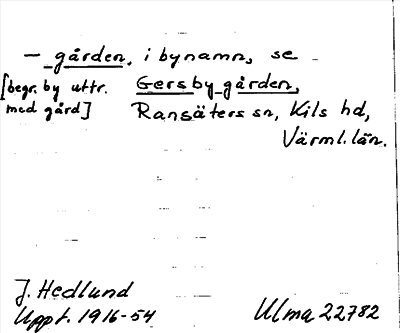 – gården, i bynamn, se
[begr. by uttr. Gersby gården,
med gård] Ransäters sn, Kils hd,
Värml. län.
J. Hedlund
Uppt. 1916-54 Ulma 22782